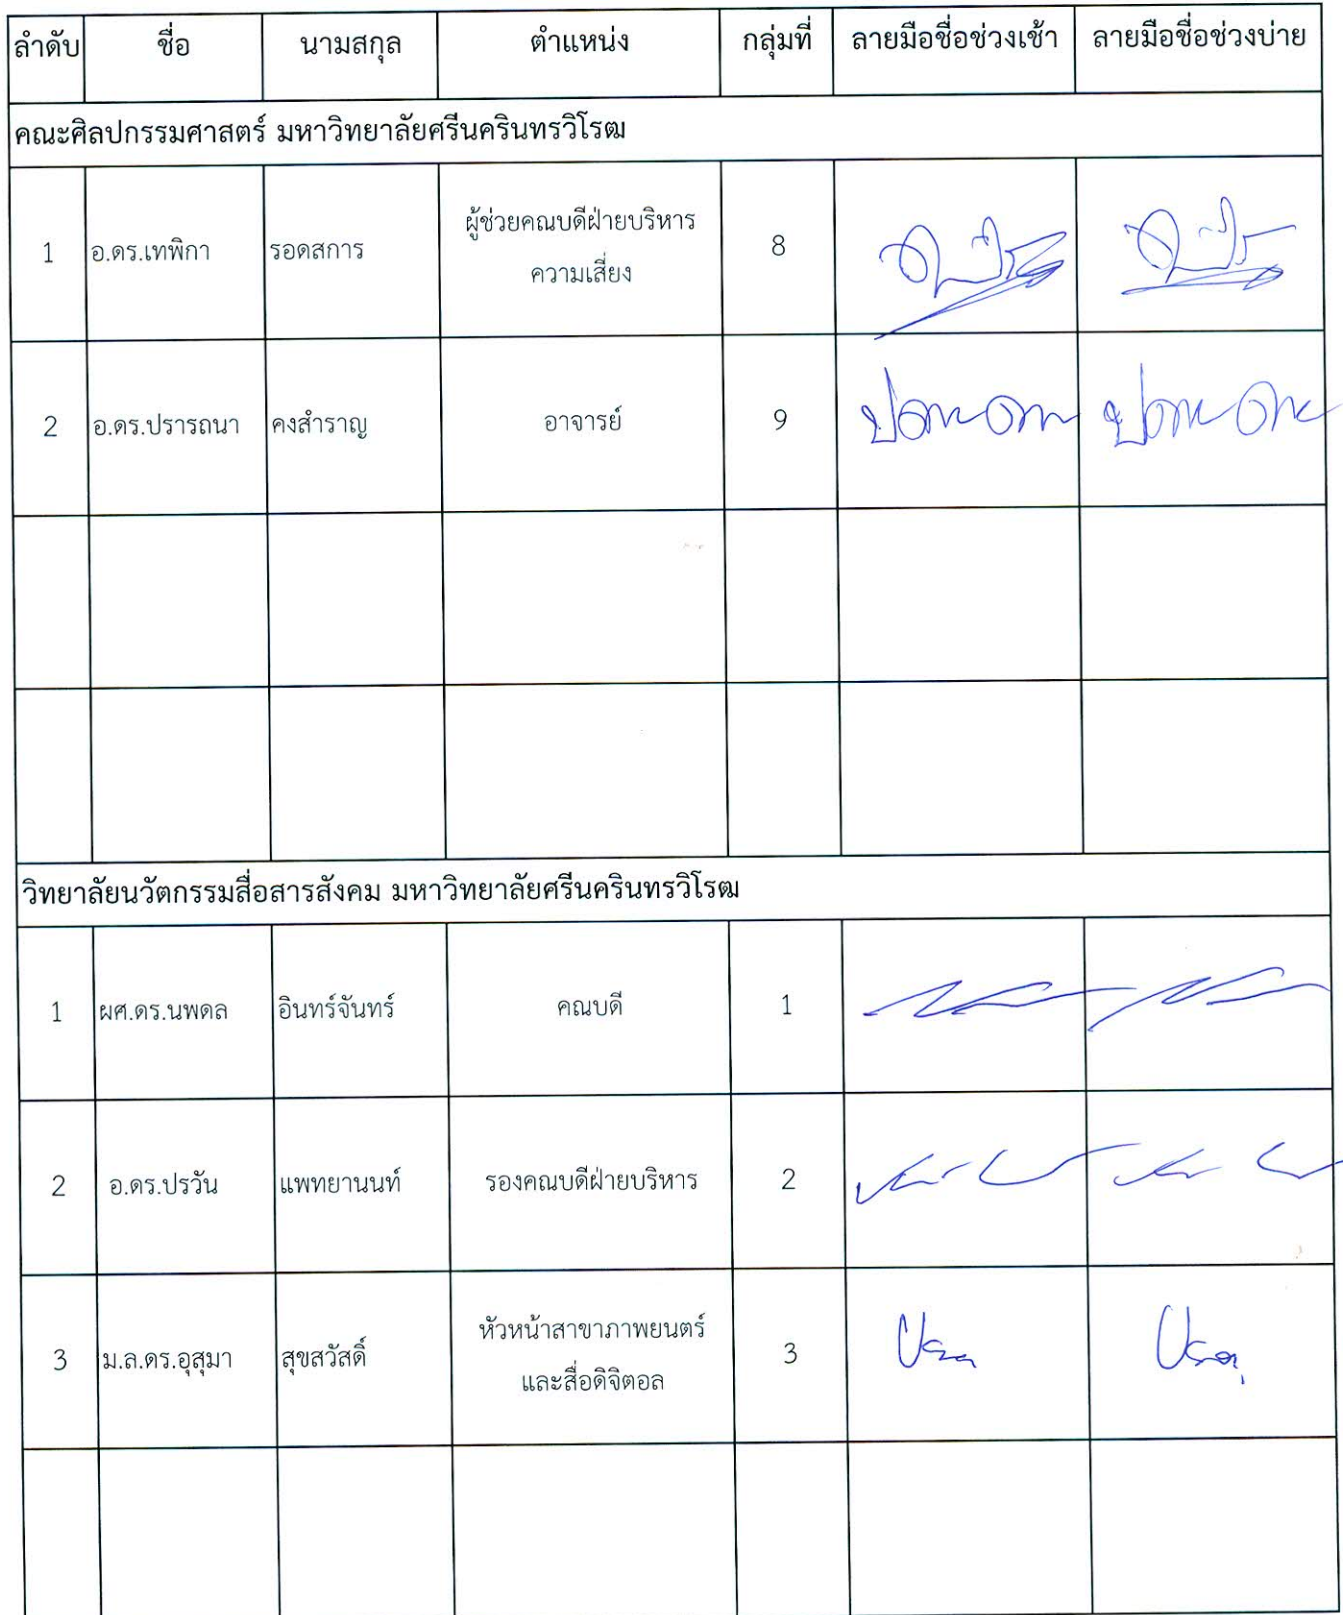 ลำดับ ชื่อ นามสกุล ตำแหน่ง กลุ่มที่ ลายมือชื่อช่วงเช้า ลายมือชื่อช่วงบ่าย
คณะศิลปกรรมศาสตร์ มหาวิทยาลัยศรีนครินทรวิโรฒ
1 อ.ดร.เทพิกา รอดสการ ผู้ช่วยคณบดีฝ่ายบริหาร 8
ความเสี่ยง
2 อ.ดร.ปรารถนา คงสำราญ อาจารย์ 9
วิทยาลัยนวัตกรรมสื่อสารสังคม มหาวิทยาลัยศรีนครินทรวิโรฒ
1 ผศ.ดร.นพดล อินทร์จันทร์ คณบดี 1
2 อ.ดร.ปรวัน แพทยานนท์ รองคณบดีฝ่ายบริหาร 2
3 ม.ล.ดร.อุสุมา สุขสวัสดิ์ หัวหน้าสาขาภาพยนตร์ 3
และสื่อดิจิตอล